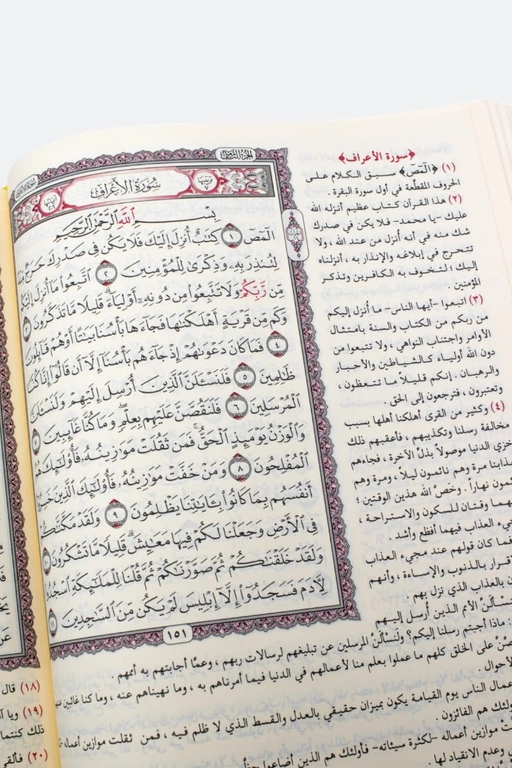 الجزء الثامن
سورة الأعراف
بِسْمِ اللَّهِ الرَّحْمَٰنِ الرَّحِيمِ
الٓمٓصٓ ١ كِتَٰبٌ أُنزِلَ إِلَيْكَ فَلَا يَكُن فِي صَدْرِكَ حَرَجٌ
لِتُنذِرَ بِهِۦ وَذِكْرَىٰ لِلْمُؤْمِنِينَ ٢ ٱتَّبِعُوا۟ مَآ أُنزِلَ
مِّن رَّبِّكُمْ وَلَا تَتَّبِعُوا۟ مِن دُونِهِۦٓ أَوْلِيَآءَ قَلِيلًا مَّا تَذَكَّرُونَ
وَكَم مِّن قَرْيَةٍ أَهْلَكْنَٰهَا فَجَآءَهَا بَأْسُنَا بَيَٰتًا أَوْ هُمْ قَآئِلُونَ
٤ فَمَا كَانَ دَعْوَىٰهُمْ إِذْ جَآءَهُم بَأْسُنَآ إِلَّآ أَن قَالُوٓا۟ إِنَّا كُنَّا
ظَٰلِمِينَ ٥ فَلَنَسْـَٔلَنَّ ٱلَّذِينَ أُرْسِلَ إِلَيْهِمْ وَلَنَسْـَٔلَنَّ
ٱلْمُرْسَلِينَ ٦ فَلَنَقُصَّنَّ عَلَيْهِم بِعِلْمٍ وَمَا كُنَّا غَآئِبِينَ
وَٱلْوَزْنُ يَوْمَئِذٍ ٱلْحَقُّ فَمَن ثَقُلَتْ مَوَٰزِينُهُۥ فَأُو۟لَٰٓئِكَ
ٱلْمُفْلِحُونَ ٨ وَمَنْ خَفَّتْ مَوَٰزِينُهُۥ فَأُو۟لَٰٓئِكَ ٱلَّذِينَ
أَنفُسَهُم بِمَا كَانُوا۟ بِـَٔايَٰتِنَا يَظْلِمُونَ ٩ وَلَقَدْ مَكَّنَّٰكُمْ
فِى ٱلْأَرْضِ وَجَعَلْنَا لَكُمْ فِيهَا مَعَٰيِشَ قَلِيلًا مَّا تَشْكُرُونَ
وَلَقَدْ خَلَقْنَٰكُمْ ثُمَّ صَوَّرْنَٰكُمْ ثُمَّ قُلْنَا لِلْمَلَٰٓئِكَةِ ٱسْجُدُوا۟
لِـَٔادَمَ فَسَجَدُوٓا۟ إِلَّآ إِبْلِيسَ لَمْ يَكُن مِّنَ ٱلسَّٰجِدِينَ
١٥١
﴿سورة الأعراف﴾
(١) ﴿الٓمٓصٓ﴾ سبق الكلام على
الحروف المقطّعة في أول سورة البقرة .
(٢) هذا القرآن كتاب عظيم أنزله الله
عليك -يا محمد- فلا يكن في صدرك
شك منه في أنه أنزل من عند الله ، ولا
تتحرج في إبلاغه والإنذار به ، أنزلناه
إليك؛ لتخوف به الكافرين وتذكر
المؤمنين .
(٣) اتبعوا -أيها الناس- ما أنزل إليكم
من ربكم من الكتاب والسنة بامتثال
الأوامر واجتناب النواهي ، ولا تتبعوا من
دون الله أولياء كـالشياطين والأحبار
والرهبان . إنكم قليلاً ما تتعظون ،
وتعتبرون ، فترجعون إلى الحق .
(٤) وكثير من القرى أهلكنا أهلها بسبب
مخالفة رسلنا وتكذيبهم ، فأعقبهم ذلك
خزي الدنيا موصولاً بذلّ الآخرة ، فجاءهم
عذابنا مرة وهم نائمون ليلاً ، ومرة وهم
نائمون نهاراً . وخصّ الله هذين الوقتين ؛
وقتان للسكون والاستراحة ،
العذاب فيهما أفظع وأشد .
فما كان قولهم عند مجيء العذاب
بالذنوب والإساءة ، وأنهم
بالعذاب الذي نزل بهم .
الأمم الذين أرسل إليهم
: ماذا أجبتم رسلنا إليكم؟ ولنَسْألنَّ المرسلين عن تبليغهم لرسالات ربهم ، وعمَّا أجابتهم به أممهم .
على الخلق كلهم ما عملوا بعلم منا لأعمالهم في الدنيا فيما أمرناهم به ، وما نهيناهم عنه ، وما كنا
الأحوال .
الناس يوم القيامة يكون بميزان حقيقي بالعدل والقسط الذي لا ظلم فيه ، فمن ثقلت موازين أعماله
هم الفائزون .
موازين أعماله -لكثرة سيئاته- فأولئك هم الذين أضاعوا
وعدم الانقياد لها .
(١٨) قال
(١٩)
ذلك
(٢٠)